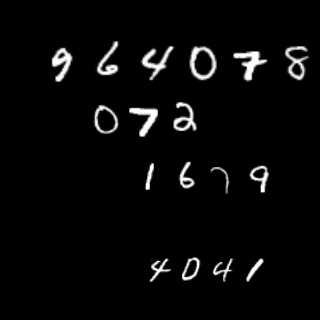 964078
072
1679
4041